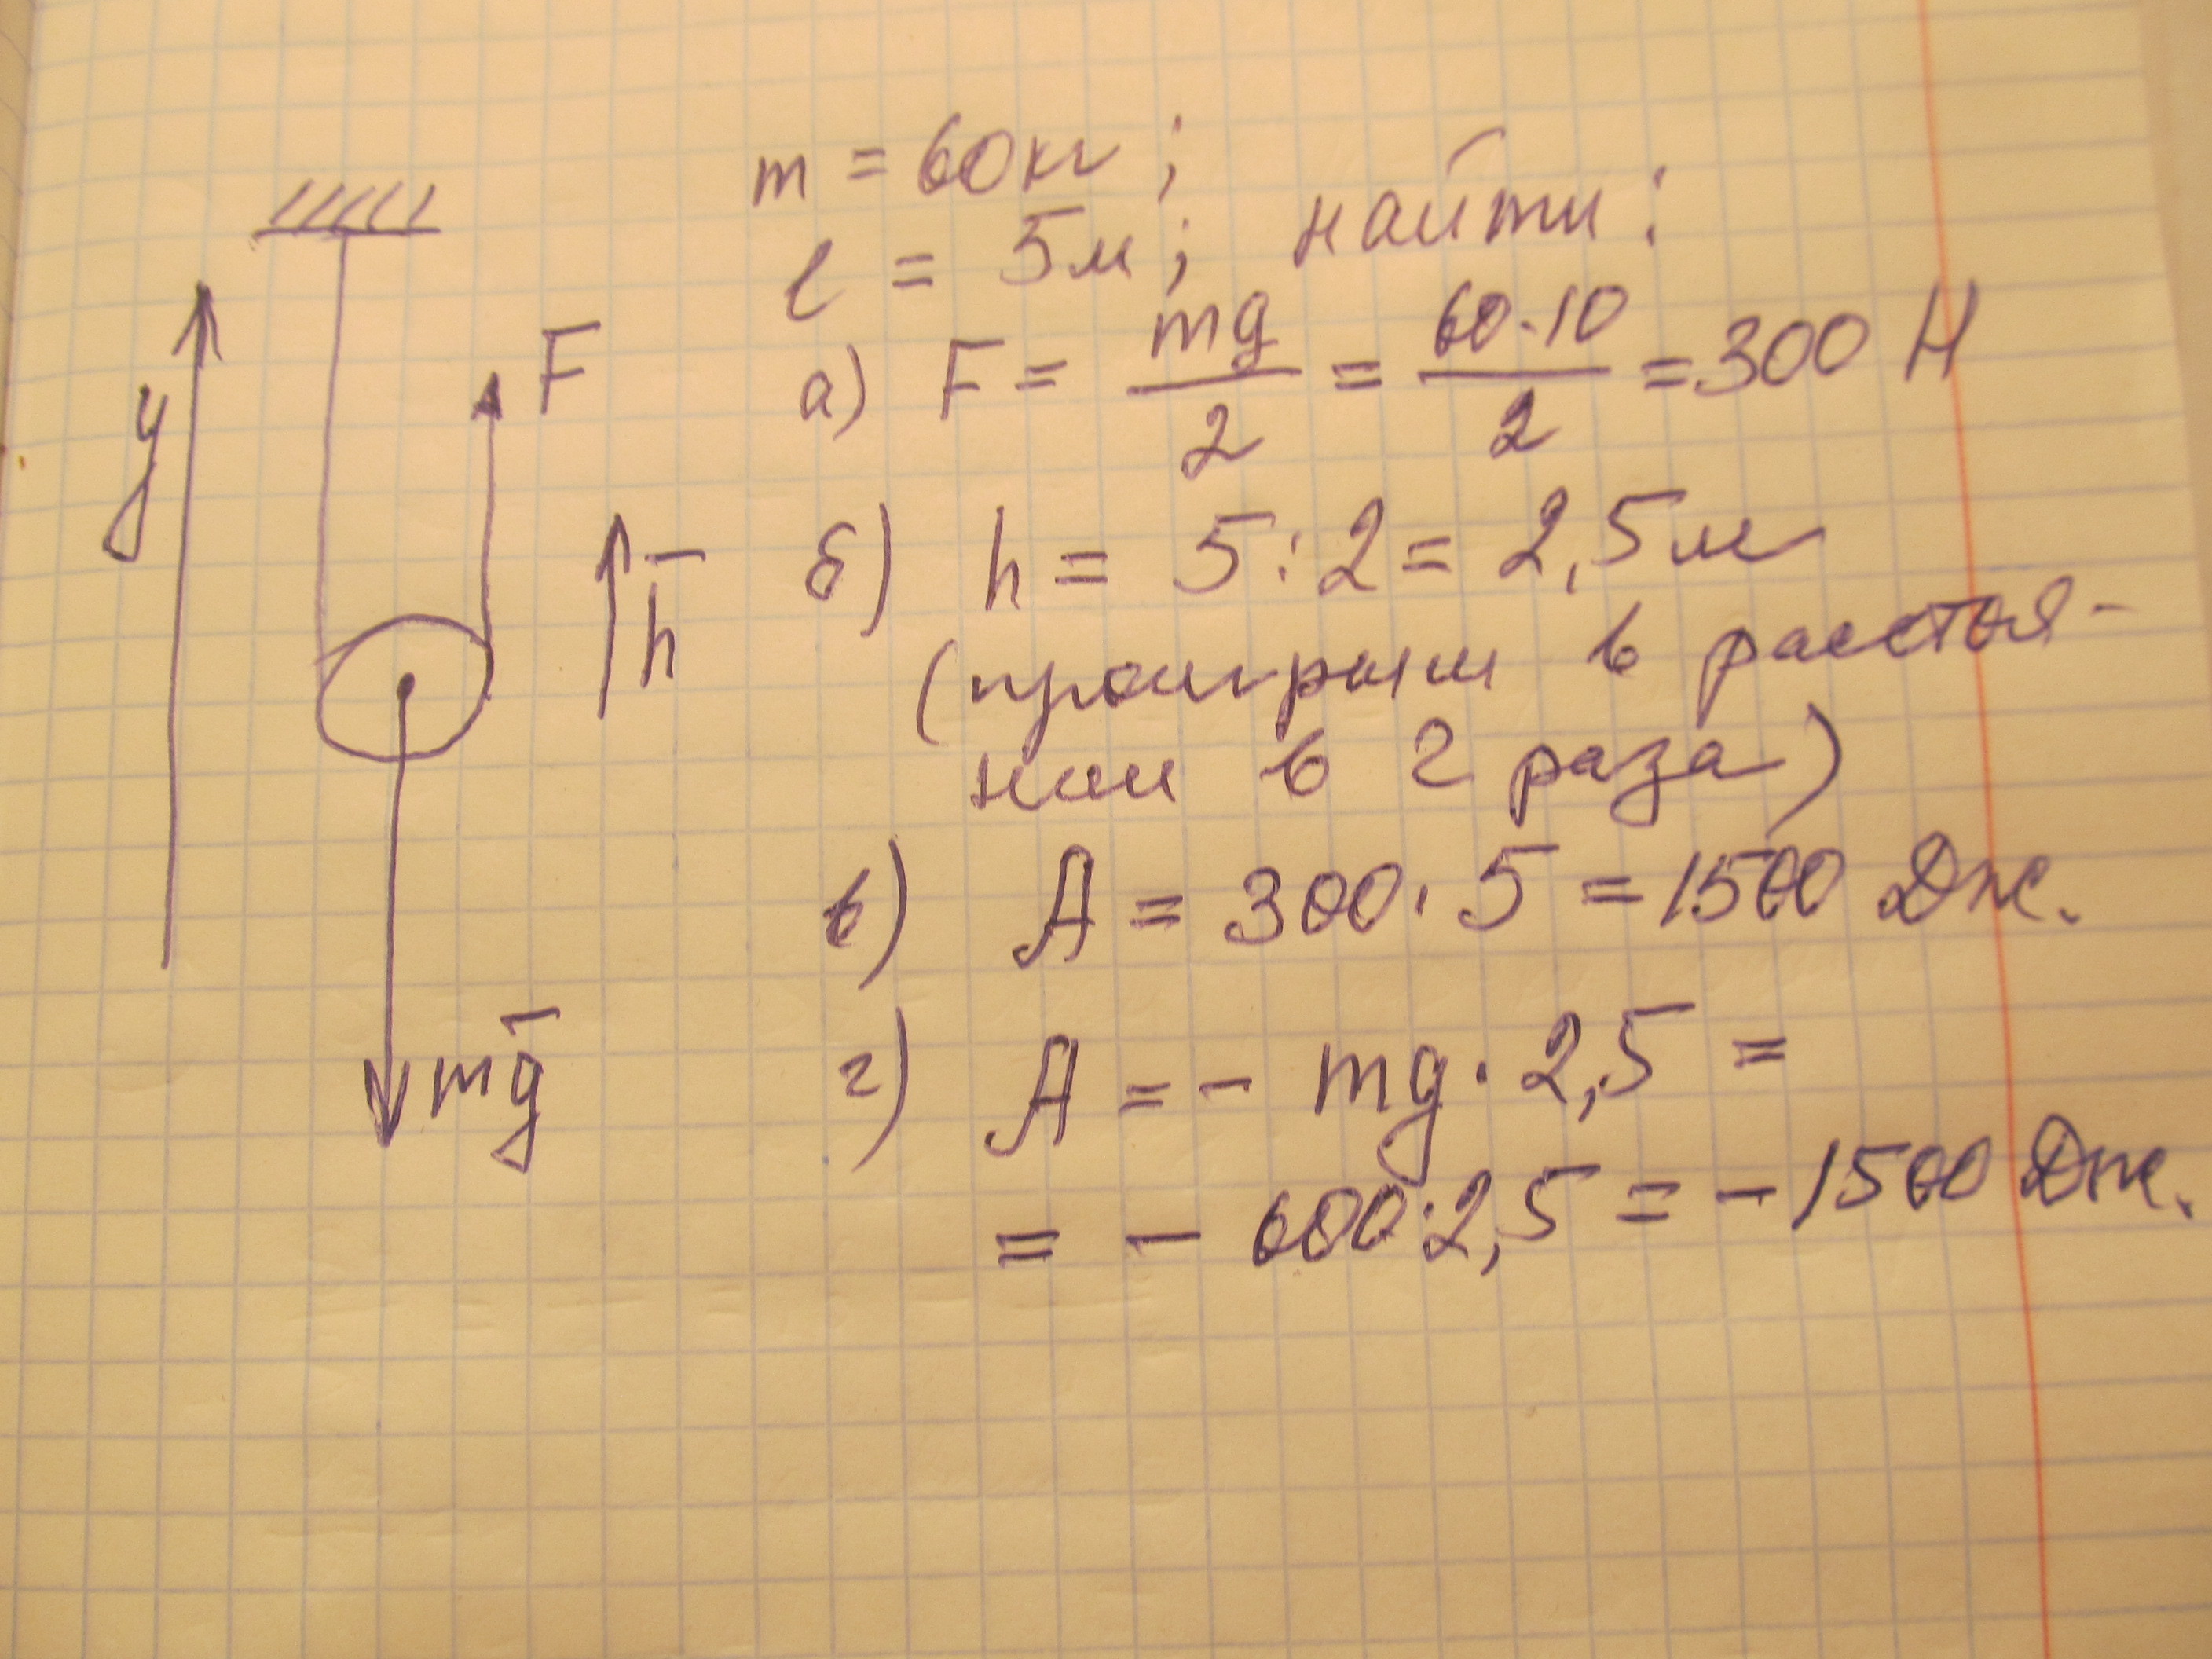 m = 60кг;
l = 5м; найти:
а) F = mg/2 = 60·10/2 = 300 Н
y
F
б) h = 5:2 = 2,5м
h̄
(проигрыш в расстоя-
нии в 2 раза)
в) A = 300·5 = 1500 Дж.
г) A = - mg·2,5 =
mḡ
= - 600·2,5 = - 1500 Дж.